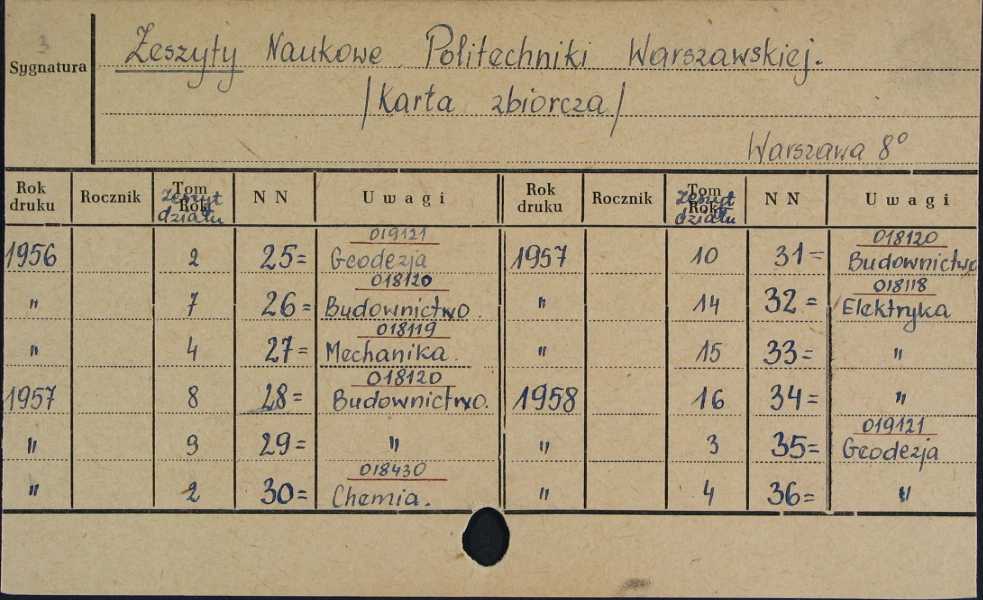 3
Sygnatura
Zeszyty Naukowe Politechniki Warszawskiej.
/Karta zbiorcza/
Warszawa 8°
Rok druku Rocznik Tom Rok Zeszyt działu N N Uwagi Rok druku Rocznik Tom Rok Zeszyt działu N N Uwagi
019121 018120
1956 2 25= Geodezja 1957 10 31= Budownictwo
018120 018118
" 7 26= Budownictwo. " 14 32= Elektryka
018119
" 4 27= Mechanika. " 15 33= "
018120
1957 8 28= Budownictwo. 1958 16 34= "
019121
" 9 29= " " 3 35= Geodezja
018430
" 2 30= Chemia. " 4 36= "